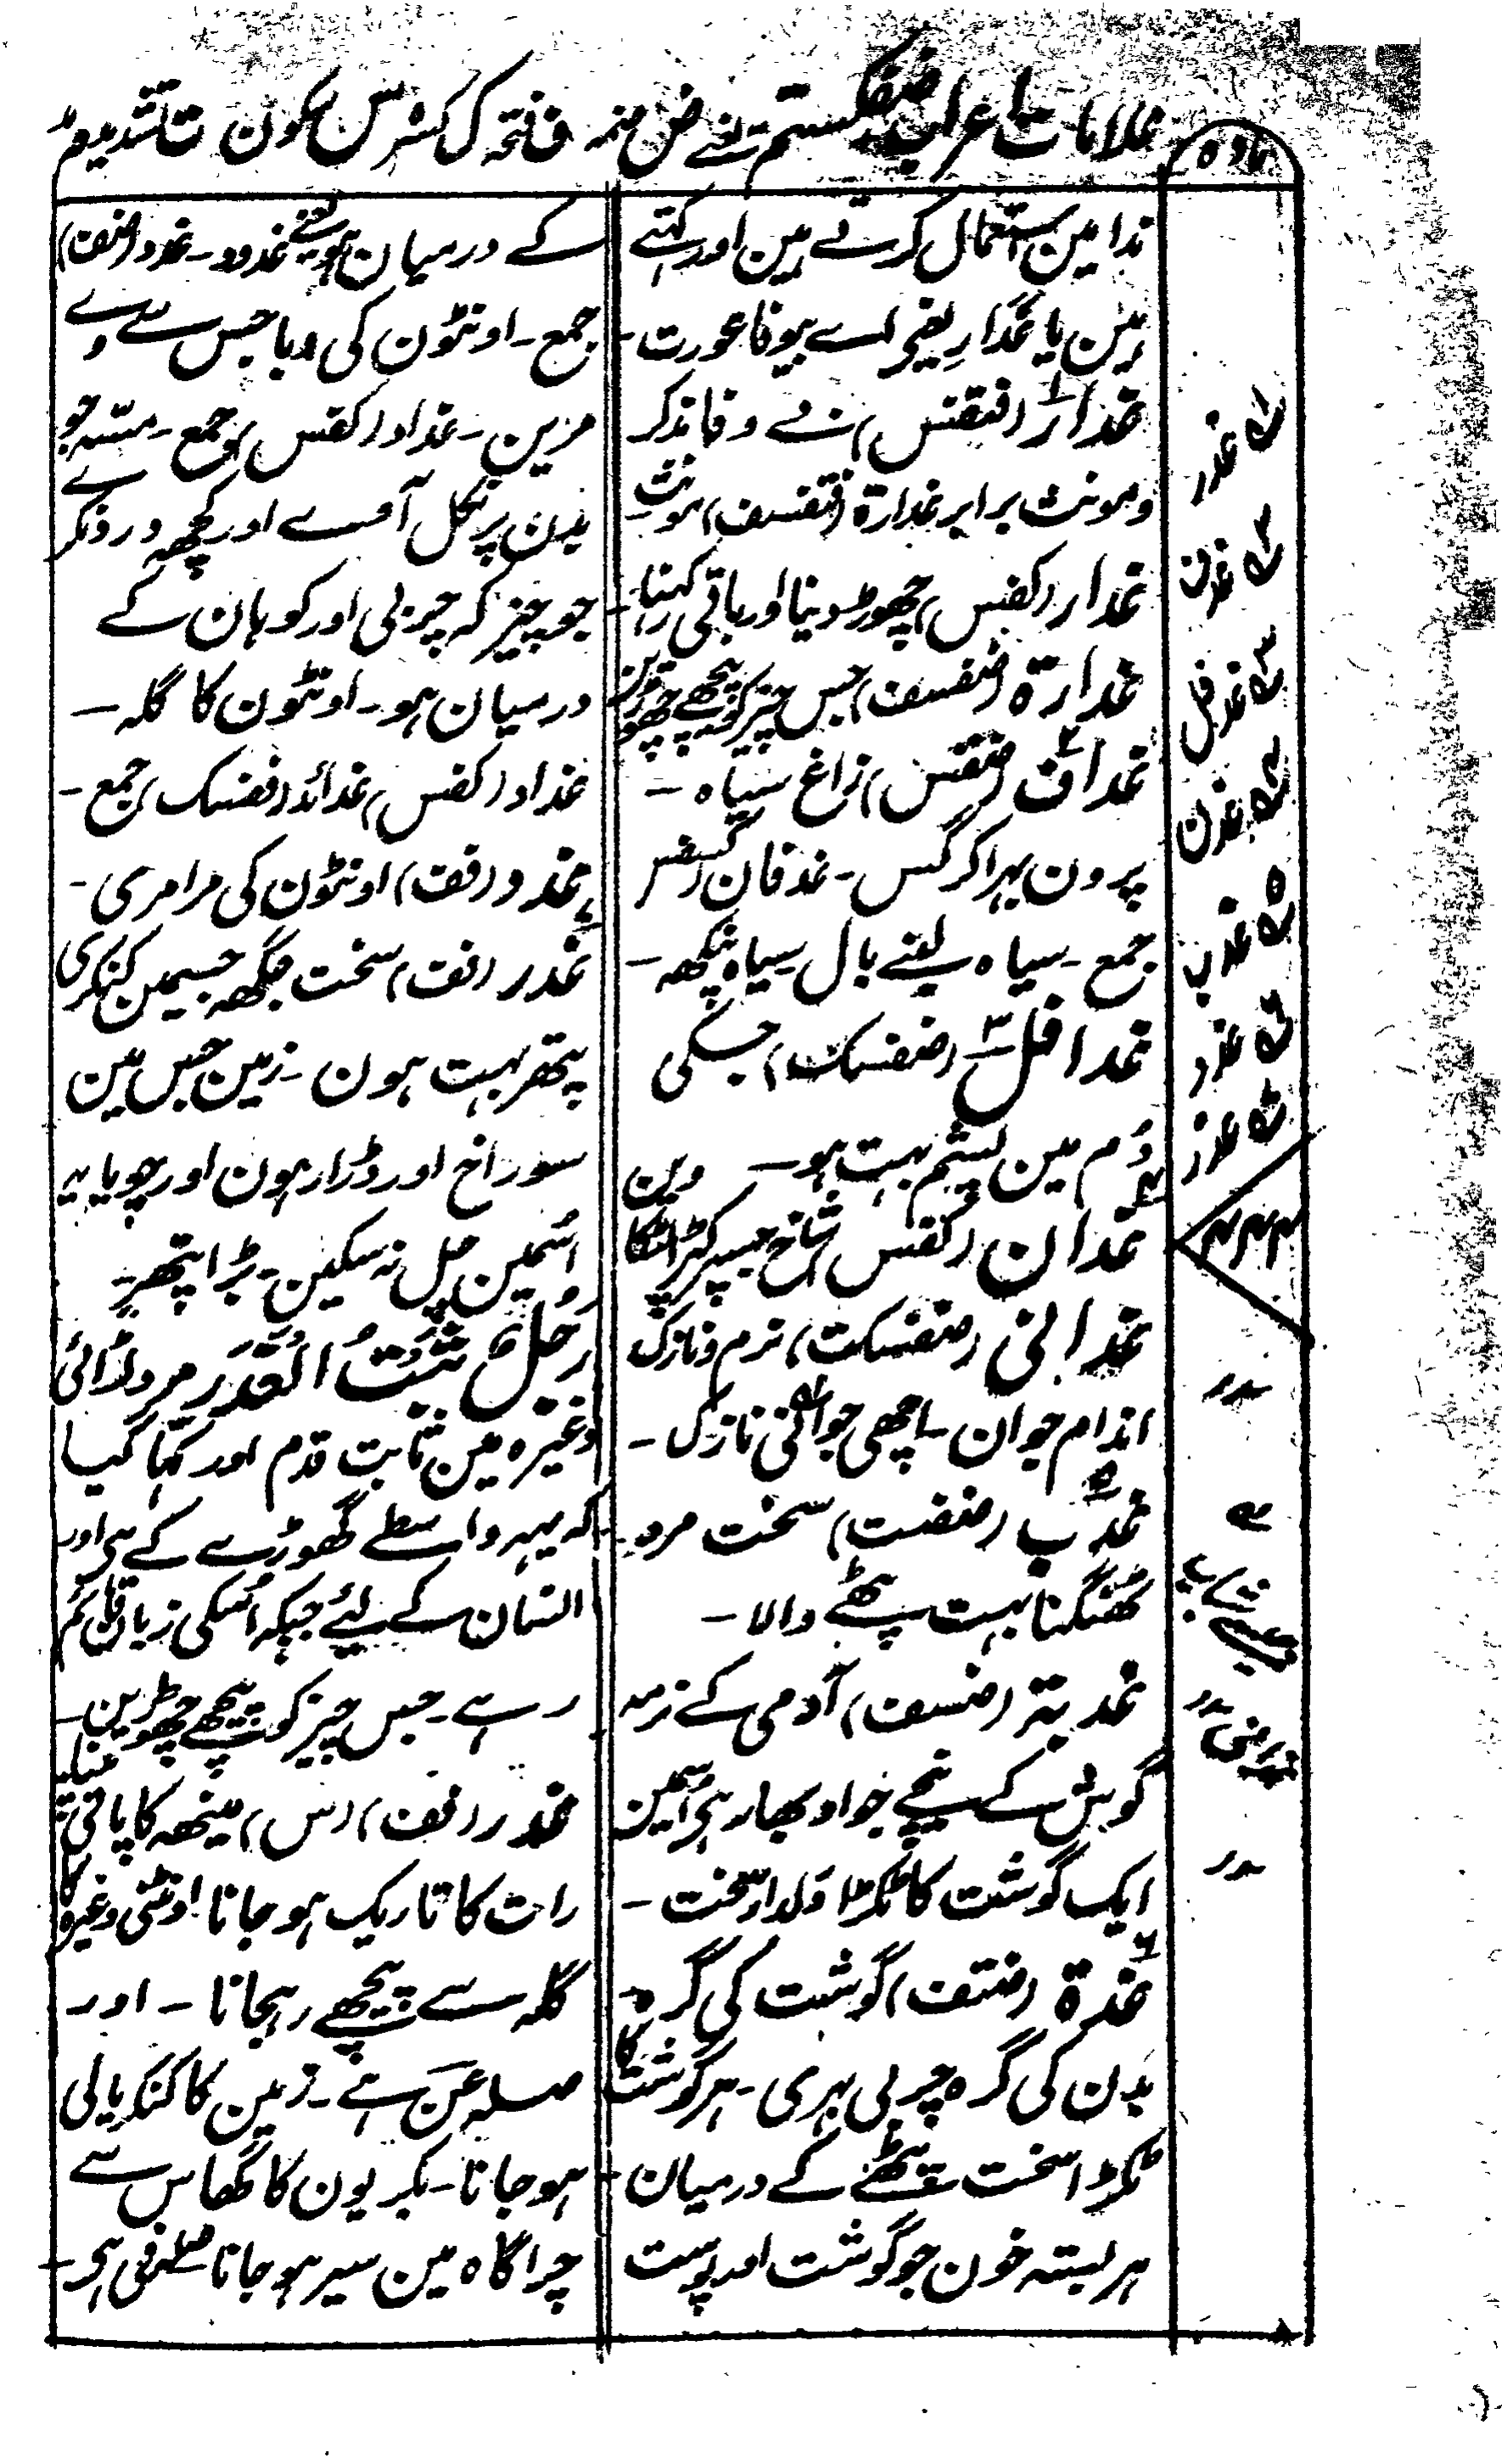 مادہ
علامات اعراب ضفکستم یعنے ض ضمہ ف فتحہ ک کسرہ س سکون ت تشدید م مد
ندا مین استعمال کرتے ہین اور کہتے
ہین یا غَدارِ یعنی اے بیوفا عورت۔
غدار (فتفس) بے وفا مذکر
و مونث برابر غدارۃ (فتفسف) مونث
غدار (کفس) چھوڑ دینا اور باقی رکہنا۔
غدارۃ (ضفسف) جس چیز کو پیچھے چھوڑین
غداف (ضفس) زاغ سیاہ ۔
پرون بہرا کرگس ۔ غدفان (کسفس)
جمع ۔ سیاہ لنبے بال سیاہ پنکھہ ۔
غدافل (ضفسک) جسکی
دُم مین پشم بہت ہو ۔
غدان (کفس) شاخ جسپر کپڑا لٹکا وین
غدانی (ضفسکت) نرم و نازک
اندام جوان ۔ اچھی جوانی نازک ۔
غدب (ضضت) سخت مرد ۔
ٹھنگنا بہت پٹھے والا ۔
غدبۃ (ضسف) آدمی کے نرمہ
گوش کے نیچے جو اوبھار ہی اسمین
ایک گوشت کا ٹکڑا دلدار سخت ۔
غدۃ (ضتف) گوشت کی گرہ ۔
بدن کی گرہ چربی بہری ۔ ہر گوشت کا
ٹکڑا سخت پٹھے کے درمیان ۔
ہر بستہ خون جو گوشت اور پوست
کے درمیان ہو یعنے غدود ۔ غدد (ضف)
جمع ۔ اونٹون کی وبا جس سے وے
مرین ۔ غداد (کفس) جمع ۔ مسّہ جو
بدن پر نکل آوے اور کچھہ درد نکرے
جو چیز کہ چربی اور کوہان کے
درمیان ہو ۔ اونٹون کا گلہ ۔
غداد (کفس) غدائد (ففسک) جمع ۔
غدد (فف) اونٹون کی مرامری ۔
غدر (فف) سخت جگہہ جسمین کنکری
پتھر بہت ہون ۔ زمین جس مین
سوراخ اور دڑار ہون اور چوپایہ
اُسمین چل نہ سکین ۔ بڑا پتھر ۔
رَجُلٌ ثَبْتُ الْغَدَر مرد لڑائی
وغیرہ مین ثابت قدم اور کہا گیا
کہ یہہ واسطے گھوڑے کے ہی اور
انسان کے لیئے جبکہ اُسکی زبان قائم
رہے ۔ جس چیز کو پیچھے چھوڑین ۔
غدر (فف) (س) مینھہ کا پانی پینا
رات کا تاریک ہو جانا ۔ اونٹنی وغیرہ کا
گلہ سے پیچھے رہجانا ۔ اور
صلہ عن ہے ۔ زمین کا کنکریالی
ہو جانا ۔ بکریون کا گھاس سے
چراگاہ مین سیر ہو جانا صلہ فی ہی ۔
غدر
غدف
غدفل
غدن
غدب
غدد
غدر